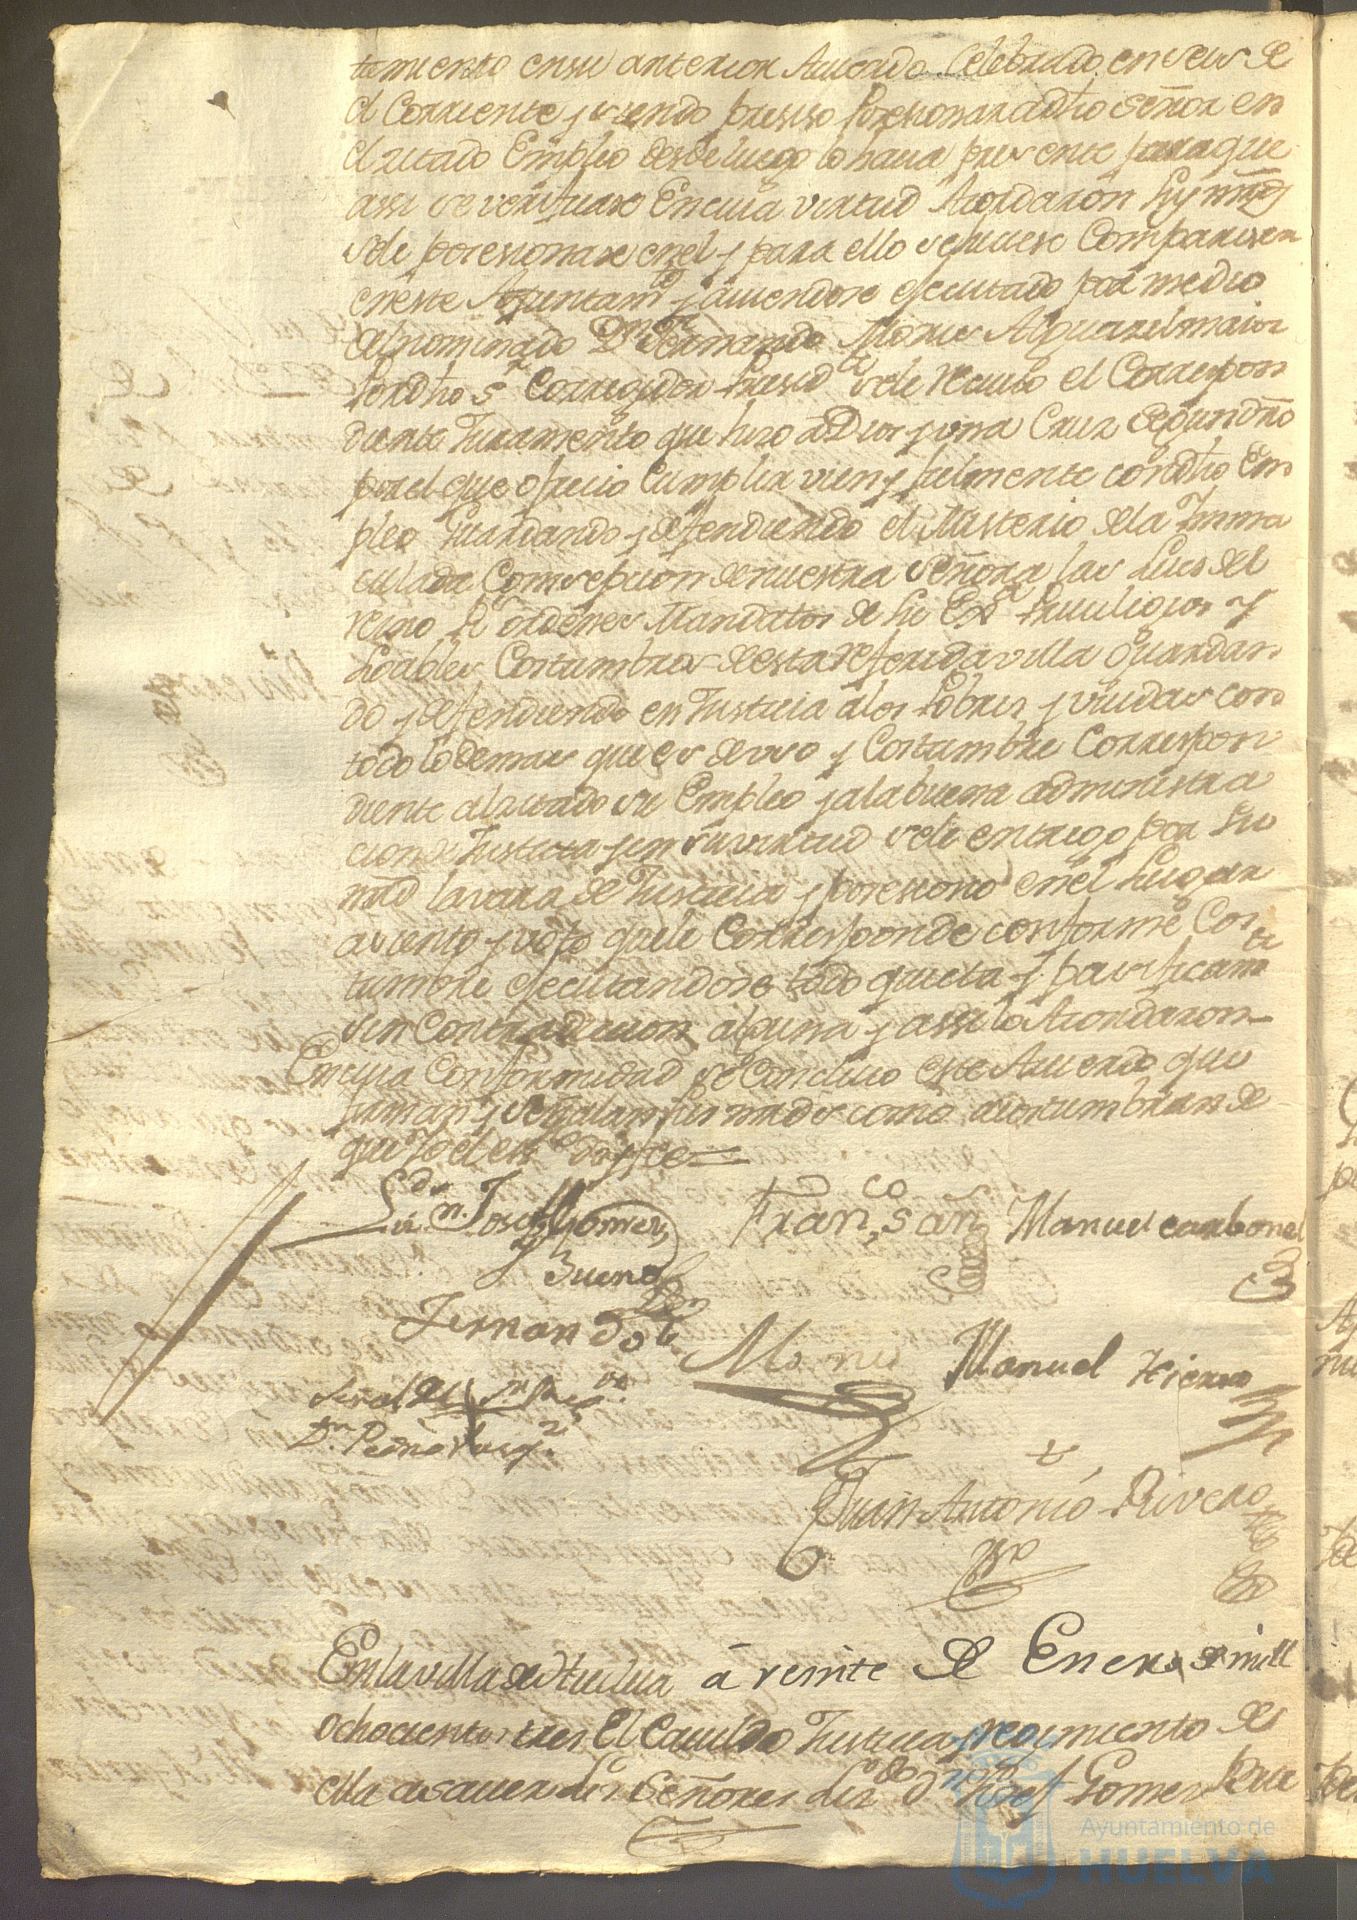 tamiento en su anterior Acuerdo Celebrado en seis de
el Corriente y siendo preciso posesionar a dho Señor en
el zitado Empleo desde luego lo hacia presente para que
assi se verificase En cuia virtud Acordaron Sus mrds
sele posesionase en el y para ello se hiciese Comparecer
en este Ayuntamto y auiendose ejecutado por medio
del nominado Dn Fernando de la Mones Alguazil maior
por dho Sr Corregidor Presidte sele reciuio el Correspon
diente Juramento que hizo a Dios y una Cruz segun dro
por el que ofrecio Cumplir vien y fielmente con dho Em
pleo Guardando y defendiendo el Misterio de la Inma
culada Comcepcion de nuestra Señora las Lues del
reino Rs ordenes Mandatos de Su Exa Priuilegios y
Loables Costumbres de esta referida villa Guardan
do y defendiendo en Justicia a los Pobres y viudas con
todo lo demas que es de uso y Costumbre Correspon
diente al zitado su Empleo y a la buena administra
cion de Justicia y en su virtud sele entrego por Su
mrd la vara de Justicia y posesiono en el Lugar
asiento y voto que le Corresponde conforme Cos
tumbre ejecutandose todo quieta y pacificamte
sin Contradicion alguna y assi lo Acordaron
En cuia Conformidad se Concluio este Acuerdo que
firman y señalan sus mrades como acostumbran de
que Yo el essno doy fee
Licdo Dn Josef Gomez Francco San Manuel carbonel
y Bueno
Fernando de la Mones Manuel Hierro
Señal del Sn
Dn Pedro Vazqz
Juan Antonio Rivero
En la villa de Huelua á veinte de Enero de mill
ochocientos tres El Cauildo Justicia y regimiento de
ella a sauer los Señores Licdo Dn Josef Gomez
Ayuntamiento de
HUELVA